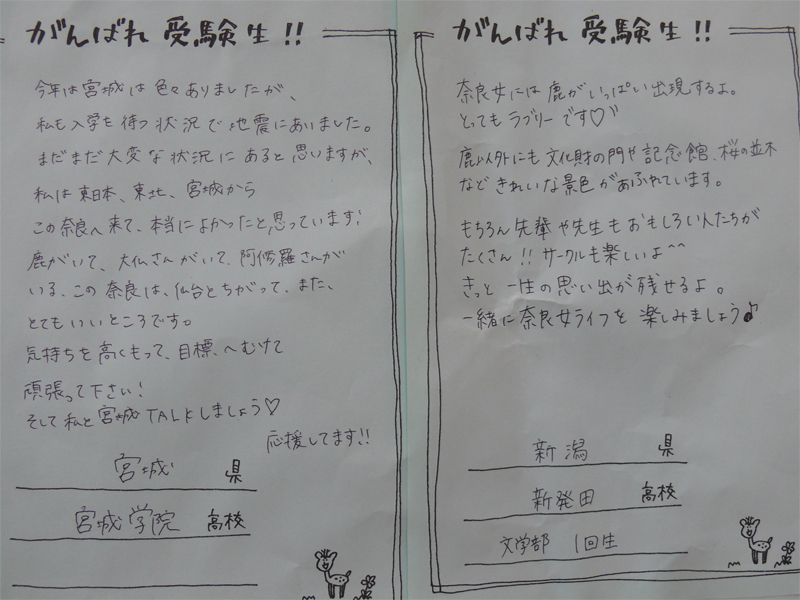 がんばれ 受験生!!
今年は宮城は色々ありましたが、
私も入学を待つ状況で地震にあいました。
まだまだ大変な状況にあると思いますが、
私は東日本、東北、宮城から
この奈良へ来て、本当によかったと思っています!
鹿がいて、大仏さんがいて、阿修羅さんが
いる、この奈良は、仙台とちがって、また、
とてもいいところです。
気持ちを高くもって、目標へむけて
頑張って下さい!
そして私と宮城TALKしましょう♡
応援してます!!
宮城 県
宮城学院 高校
がんばれ 受験生!!
奈良女には鹿がいっぱい出現するよ。
とってもラブリーです♡
鹿以外にも文化財の門や記念館、桜の並木
などきれいな景色があふれています。
もちろん先輩や先生もおもしろい人たちが
たくさん!!サークルも楽しいよ^^
きっと一生の思い出が残せるよ。
一緒に奈良女ライフを楽しみましょう♪
新潟 県
新発田 高校
文学部 1回生